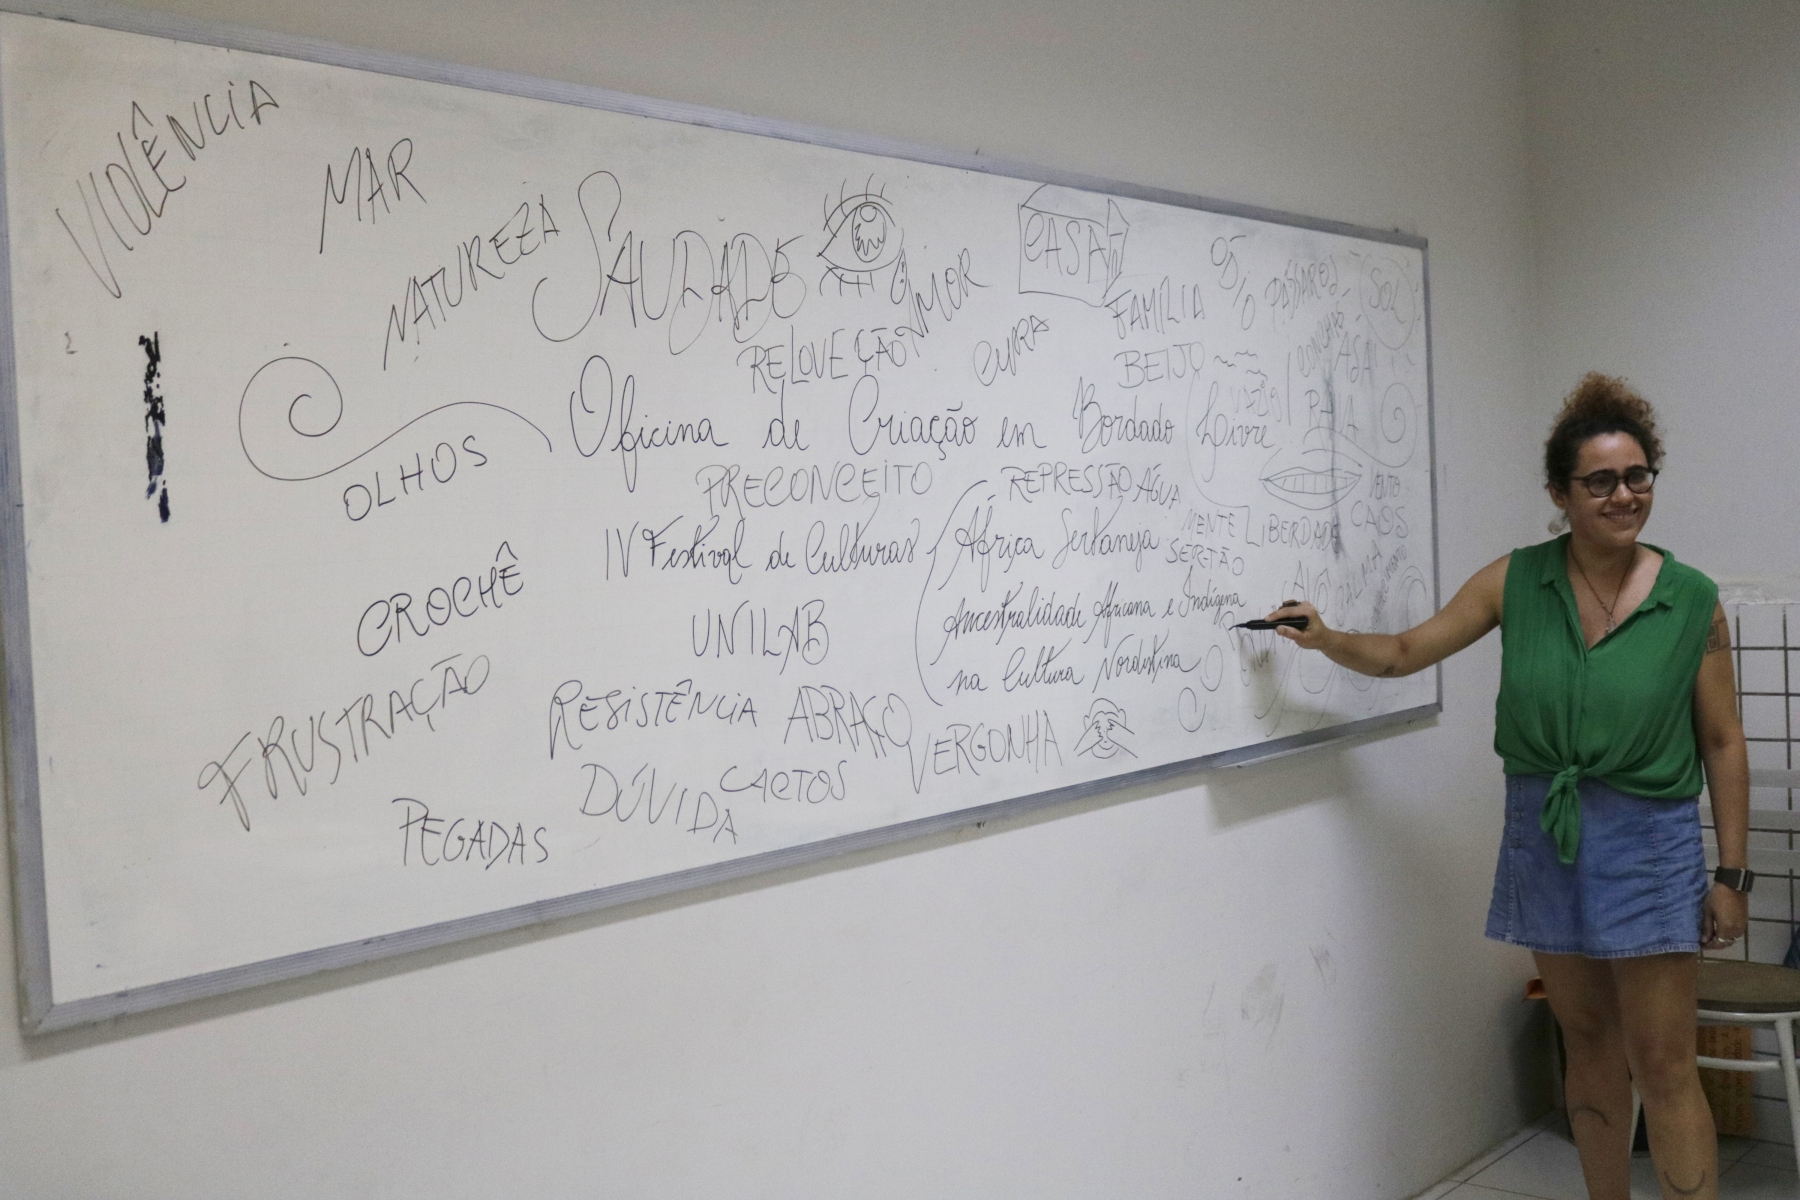 VIOLÊNCIA
MAR
NATUREZA
SAUDADE
AMOR
CASA
FAMÍLIA
PÁSSAROS
SOL
RELOVEÇÃO
CURA
BEIJO
CONCHAS
ASA
Oficina de Criação em Bordado Livre
OLHOS
PRECONCEITO
REPRESSÃO
ÁGUA
VENTO
IV Festival de Culturas
África Sertaneja
MENTE
LIBERDADE
CAOS
SERTÃO
CROCHÊ
UNILAB
Ancestralidade Africana e Indígena
ALMA
na Cultura Nordestina
FRUSTRAÇÃO
RESISTÊNCIA
ABRAÇO
VERGONHA
DÚVIDA
CACTOS
PEGADAS